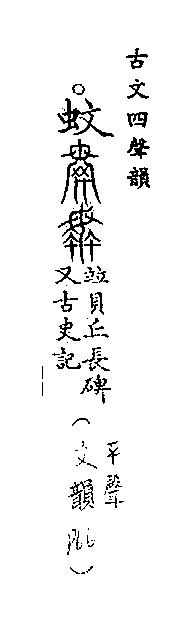 古文四聲韻
。蚊
並貝丘長碑
又古史記
(平聲
文韻
)